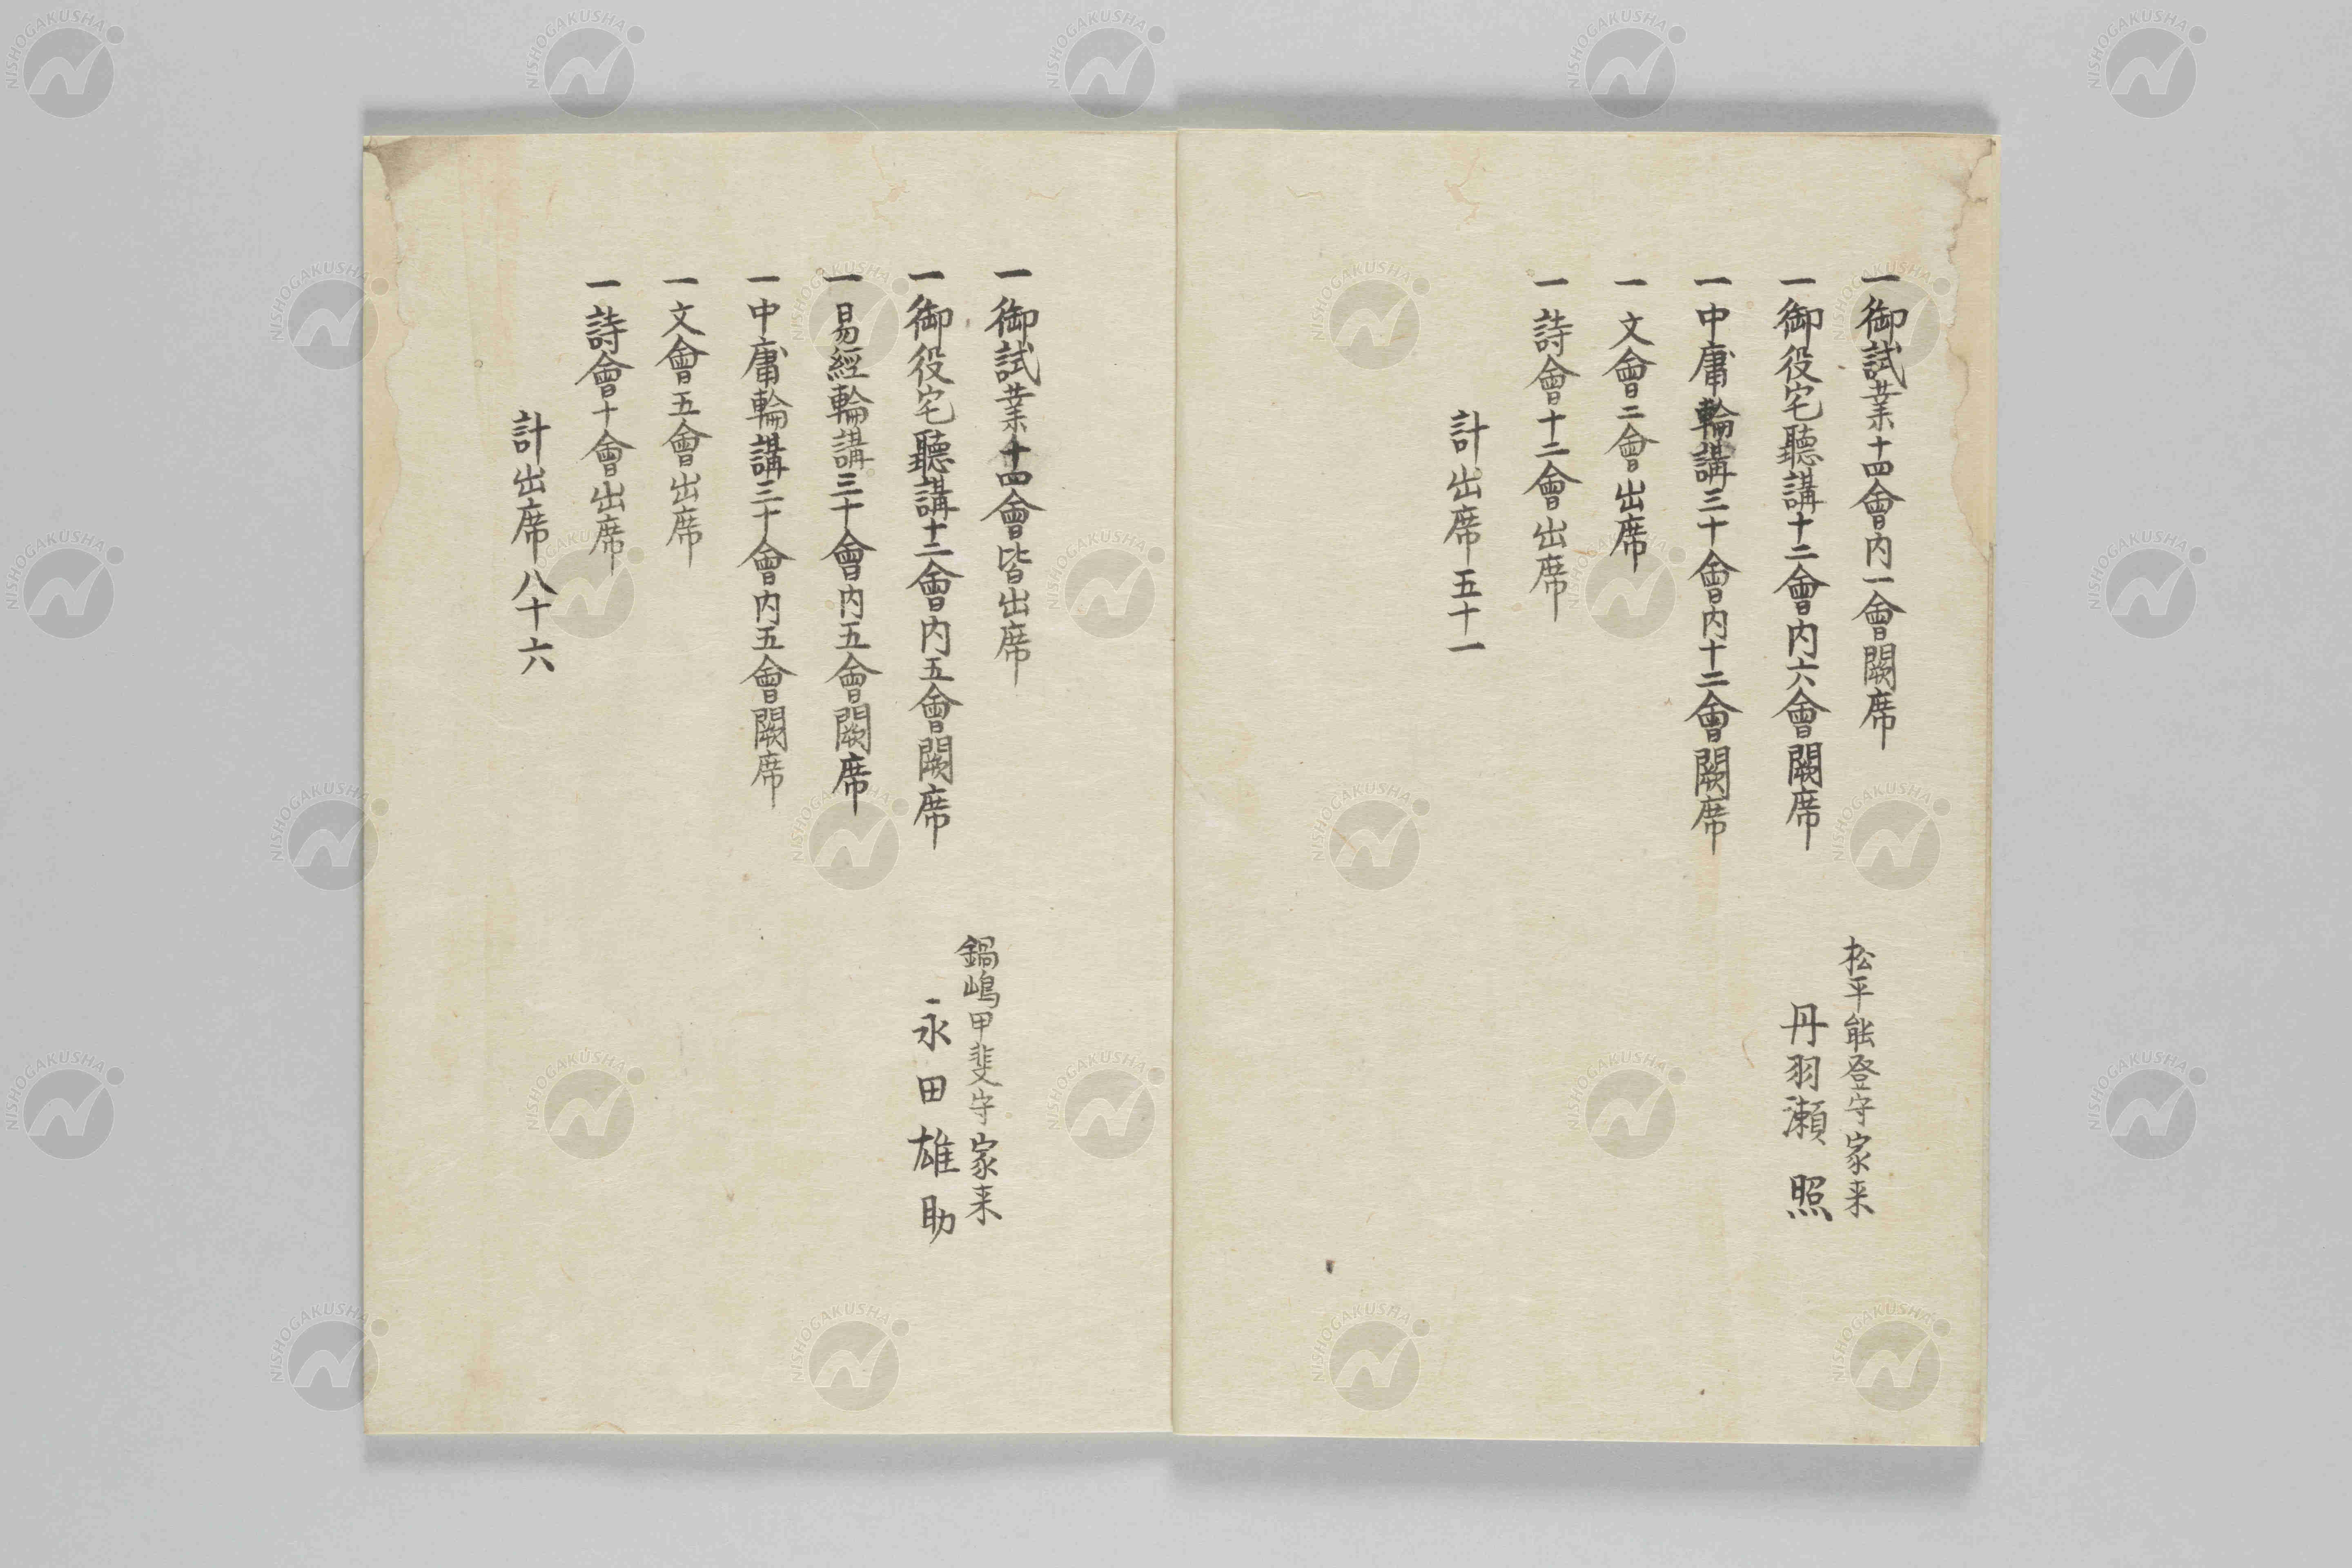 一御試業十四會内一會闕席
一御役宅聽講十二會内六會闕席
一中庸輪講三十會内十二會闕席
一文會二會出席
一詩會十二會出席
計出席五十一
松平能登守家来
丹羽瀬照
一御試業十四會皆出席
一御役宅聽講十二會内五會闕席
一易經輪講三十會内五會闕席
一中庸輪講三十會内五會闕席
一文會五會出席
一詩會十會出席
計出席八十六
鍋嶋甲斐守家来
永田雄助
NISHOGAKUSHA